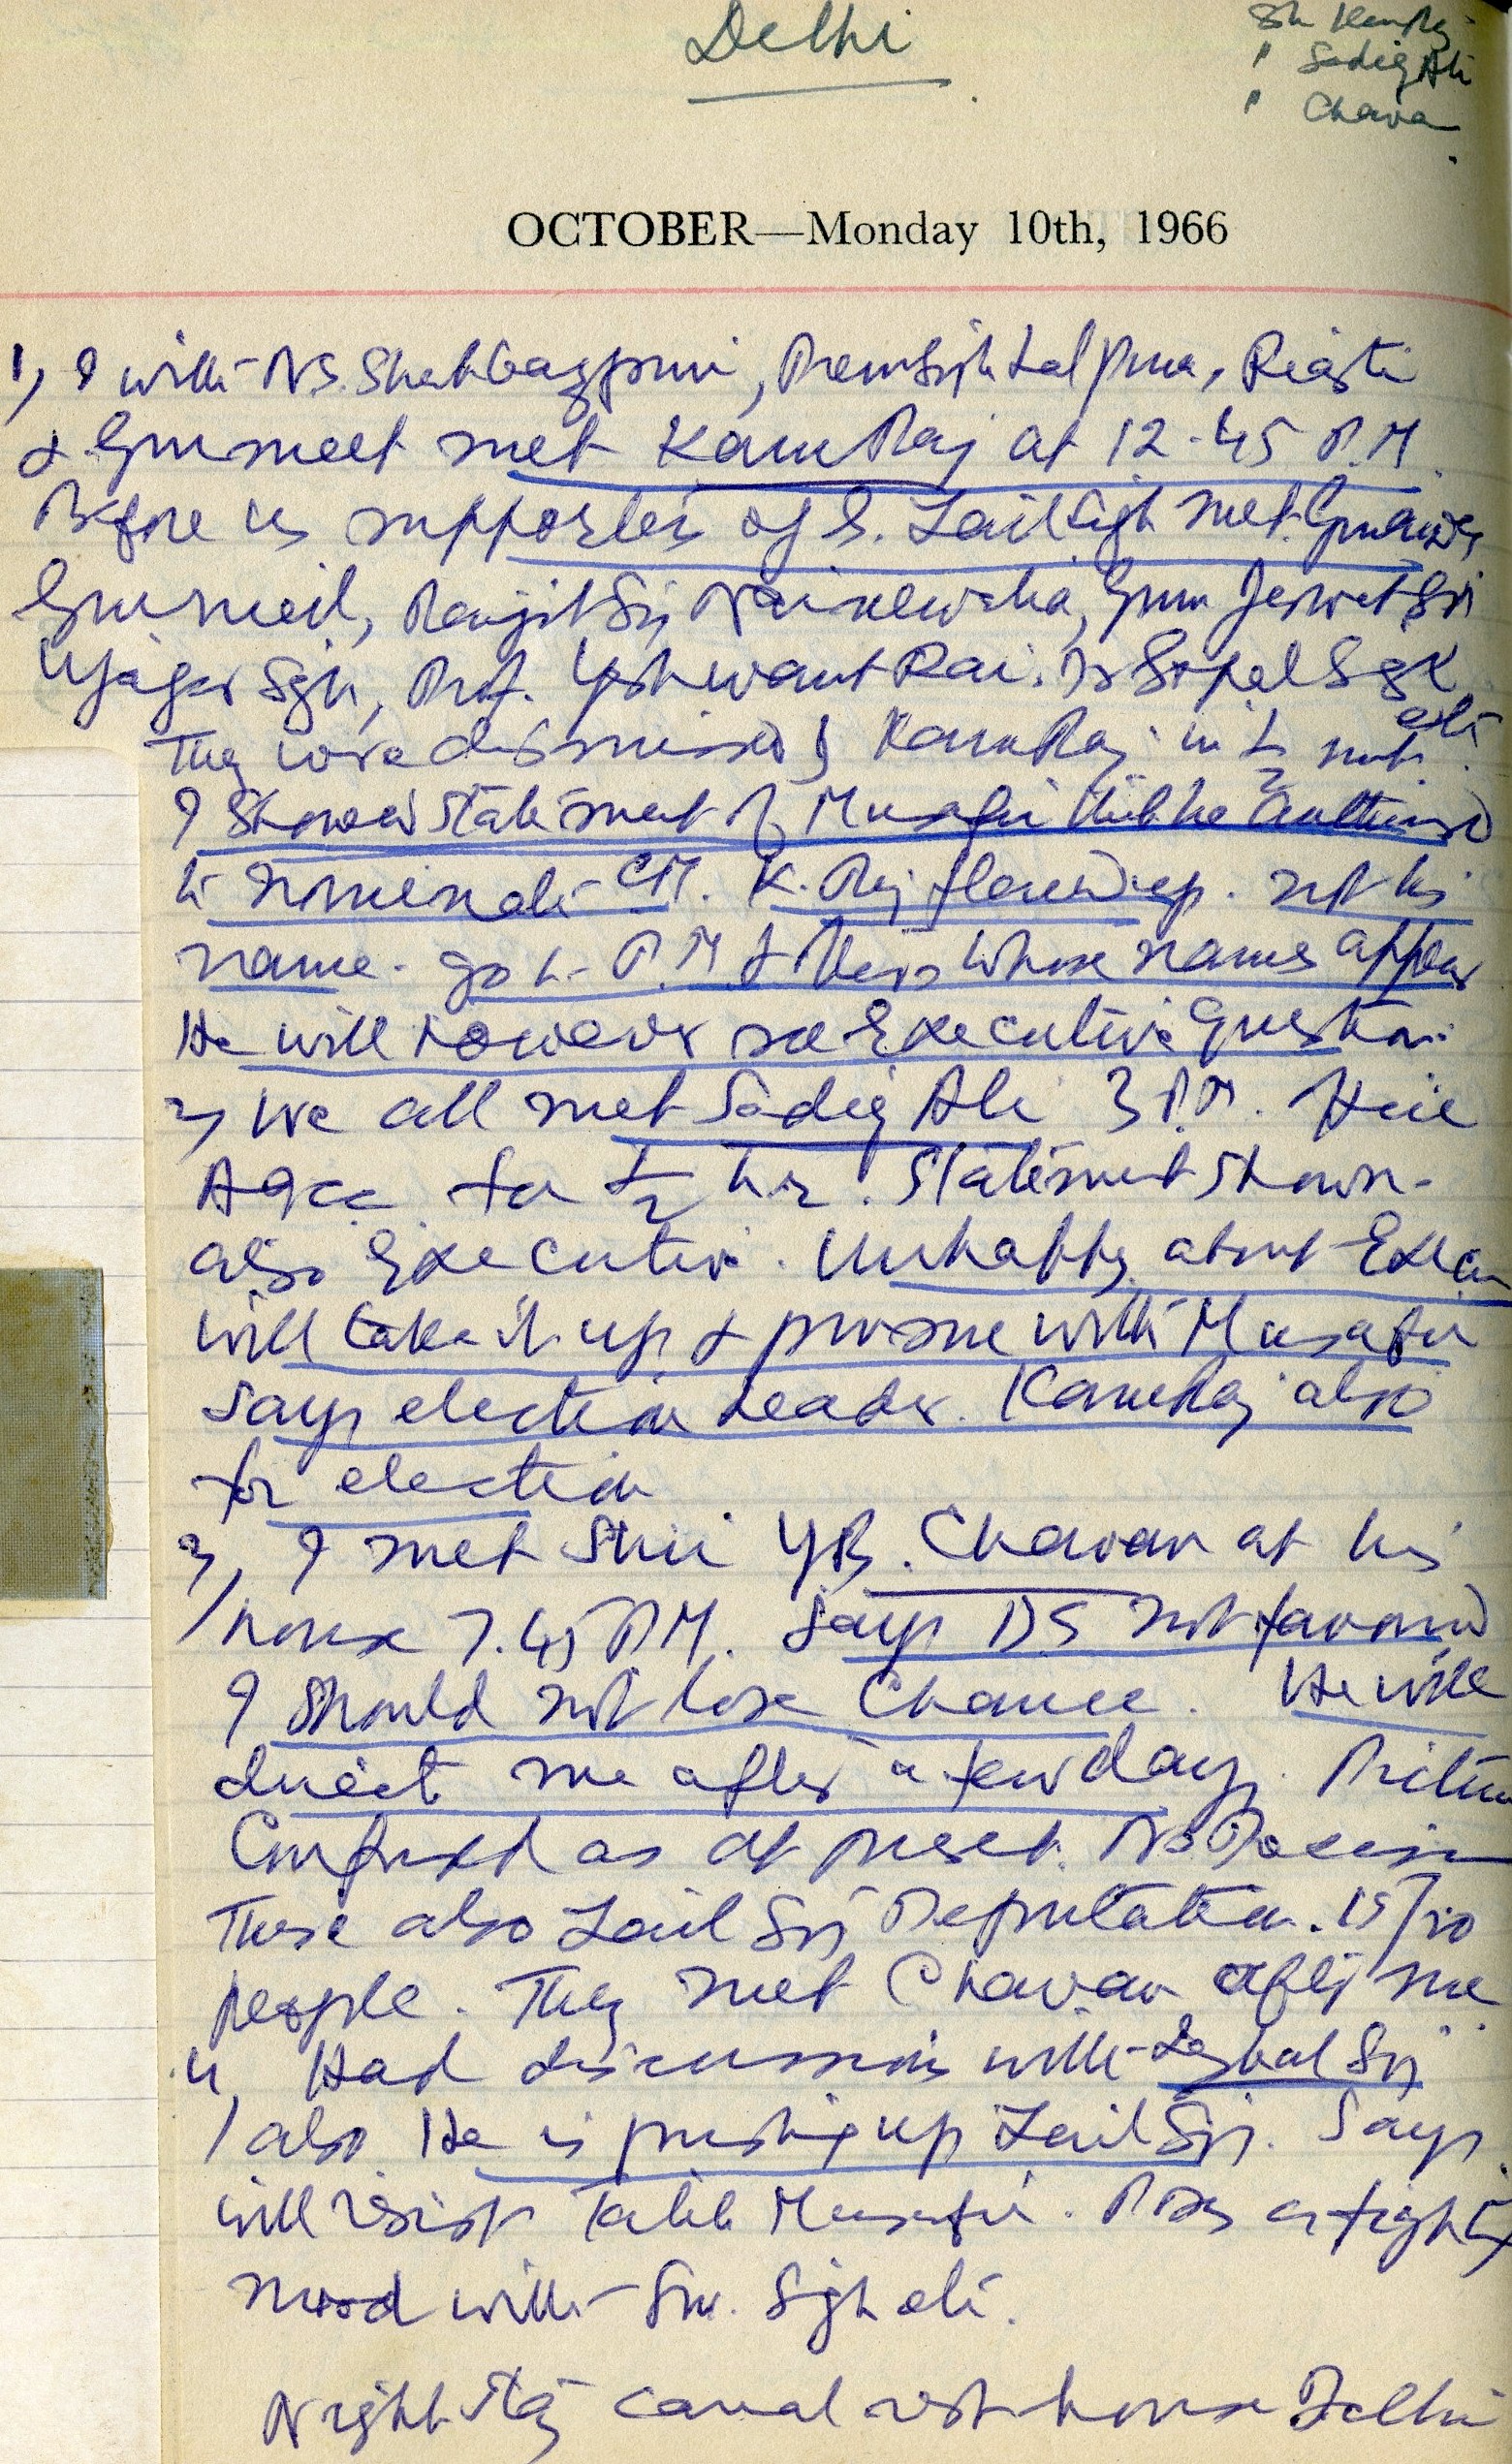 Delhi
Sh KamRaj
" Sadiq Ali
" Chava
OCTOBER—Monday 10th, 1966
1, I with NS. Shahbazpuri, Prem Singh Lalpura,
& Gurmeet met KamRaj at 12-45 P.M.
Before us supporters of S. Zail Sigh met.
Gurmeil, Ranjit Si Nainewala, Gian
Ujagar Sgh, Prof. Yashwant Rai.
They were dismissed by KamRaj in 2 mts.
I showed statement of Musafir that he authorised
to nominate CM. K. Raj flared up. not his
name. go to P.M & others whose names appear
He will however see Executive question.
2, We all met Sadiq Ali 3 P.M. Here
for 1/2 hr. Statement shown.
also Executive. Unhappy about
will take it up & pursue with Musafir
Says election Leader. KamRaj also
for election
3, I met Shri YB. Chavan at his
house 7.45 PM. Says DS not favoured
I should not lose chance. He will
direct me after a few days.
Confused as at present. No Decision
There also Zail Si Deputation. 15/20
people. They met Chavan after me
4, Had discussions with Iqbal Si
also He is pushing up Zail Si. Says
will resist Musafir. a fighting
mood with Sw. Sigh etc.
Night stay canal rest house Delhi